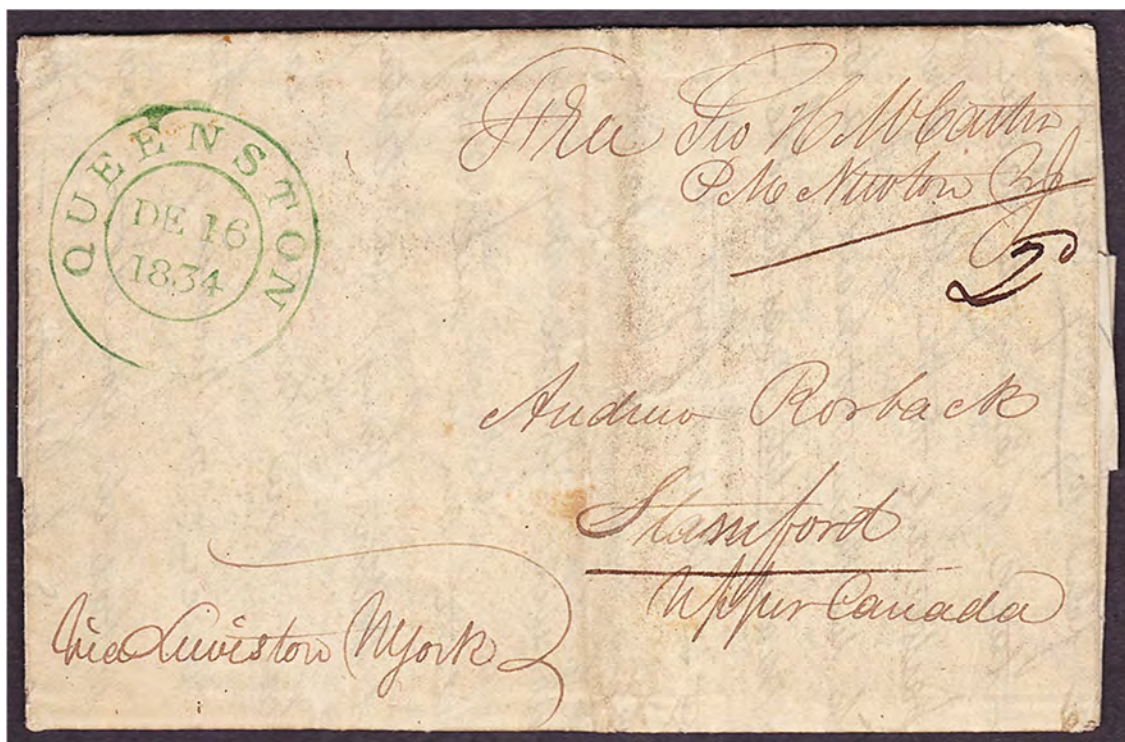 QUEENSTON
DE 16
1834
Free Geo H McCarter
PM Newton NJ
2D
Andrew Rorback
Stamford
Upper Canada
Via Lewiston NYork